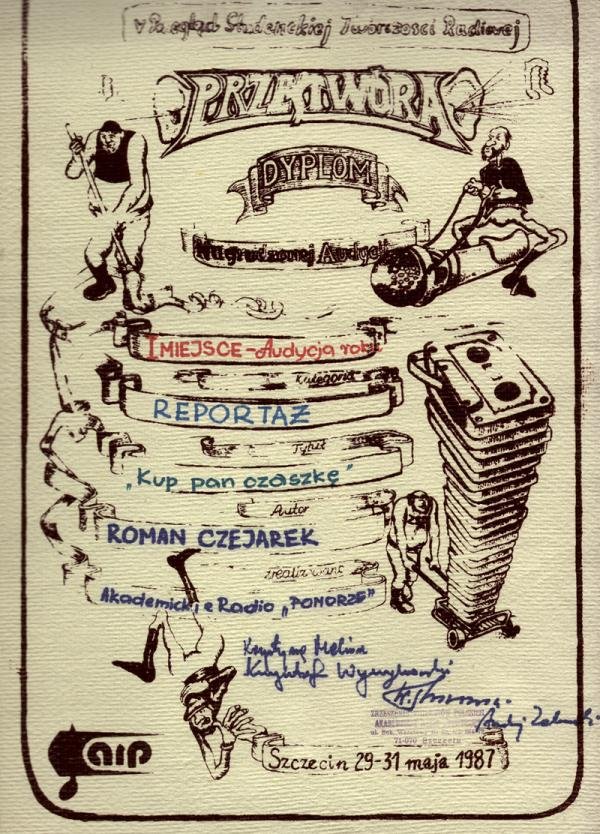 V Przegląd Studenckiej Twórczości Radiowej
PRZETWÓRA
DYPLOM
Nagrodzonej Audycji
I MIEJSCE - Audycja roku
Kategoria
REPORTAŻ
Tytuł
„Kup pan czaszkę"
Autor
ROMAN CZEJAREK
zrealizowano
Akademickie Radio „POMORZE"
71-070 Szczecin
arp
Szczecin 29-31 maja 1987